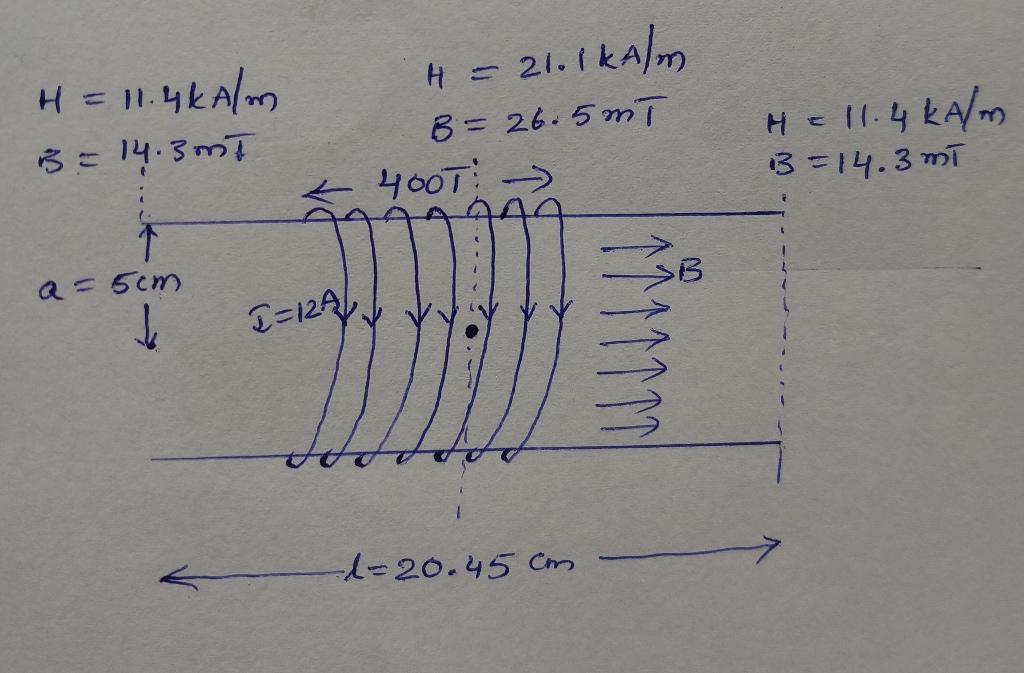 H = 11.4kA/m
B = 14.3mT
H = 21.1kA/m
B = 26.5mT
H = 11.4 kA/m
B = 14.3 mT
← 400T →
a = 5cm
I=12A
B
l=20.45 cm